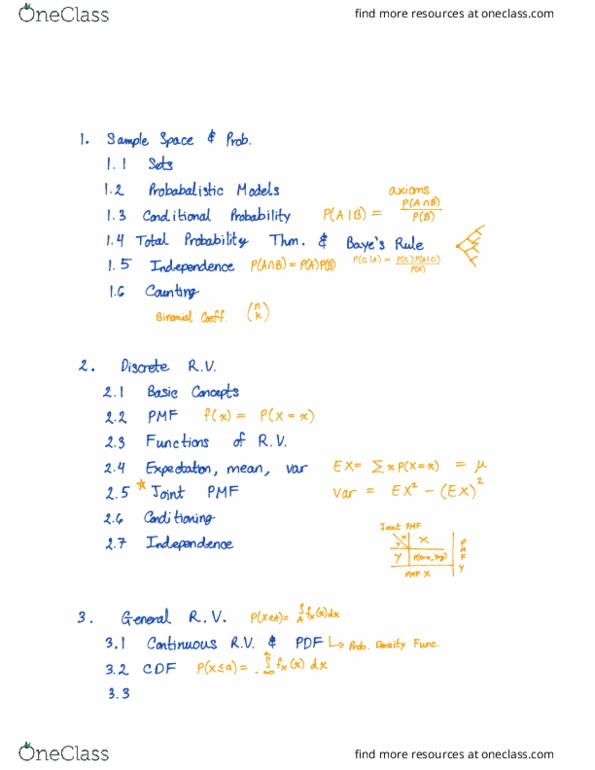 OneClass find more resources at oneclass.com
1. Sample Space & Prob.
1.1 Sets
1.2 Probabalistic Models axioms
1.3 Conditional Probability P(A|B) = P(A∩B) / P(B)
1.4 Total Probability Thm. & Baye's Rule
1.5 Independence P(A∩B) = P(A)P(B) P(Ci|A) = P(Ci)P(A|Ci) / P(A)
1.6 Counting
Binomial Coeff. (n k)
2. Discrete R.V.
2.1 Basic Concepts
2.2 PMF f(x) = P(X = x)
2.3 Functions of R.V.
2.4 Expectation, mean, var EX = Σ x P(X=x) = μ
2.5 * Joint PMF Var = EX² - (EX)²
2.6 Conditioning
2.7 Independence
Joint PMF
X
Y
PMF X
PMF Y
3. General R.V. P(X∈A) = ∫A fx(x) dx
3.1 Continuous R.V. & PDF ↳ Prob. Density Func.
3.2 CDF P(X≤a) = ∫ fx(x) dx
3.3
OneClass find more resources at oneclass.com